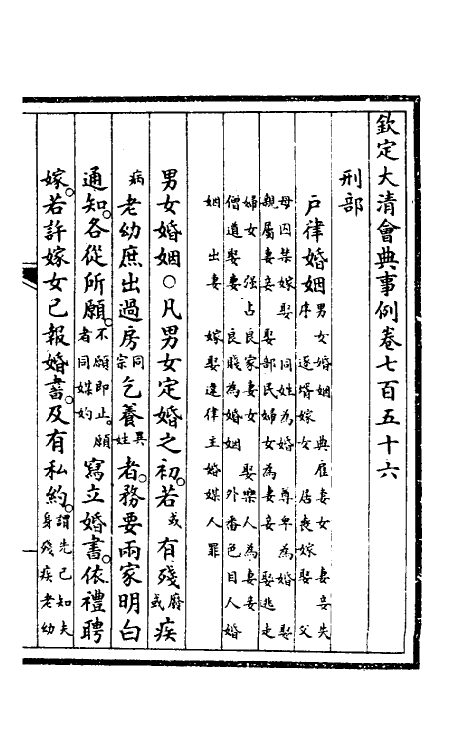 欽定大清會典事例卷七百五十六
刑部
戶律婚姻男女婚姻 典雇妻女 妻妾失
序 逐壻嫁女 居喪嫁娶 父
母囚禁嫁娶 同姓為婚 尊卑為婚 娶
親屬妻妾 娶部民婦女為妻妾 娶逃走
婦女 强占良家妻女 娶樂人為妻妾
僧道娶妻 良賤為婚姻 外番色目人婚
姻 出妻 嫁娶違律主婚媒人罪
男女婚姻○凡男女定婚之初。若或有殘廢或疾
病老幼庶出過房同宗乞養異姓者。務要兩家明白
通知。各從所願。不願即止。願者同媒妁寫立婚書。依禮聘
嫁。若許嫁女已報婚書。及有私約。謂先已知夫身殘疾老幼